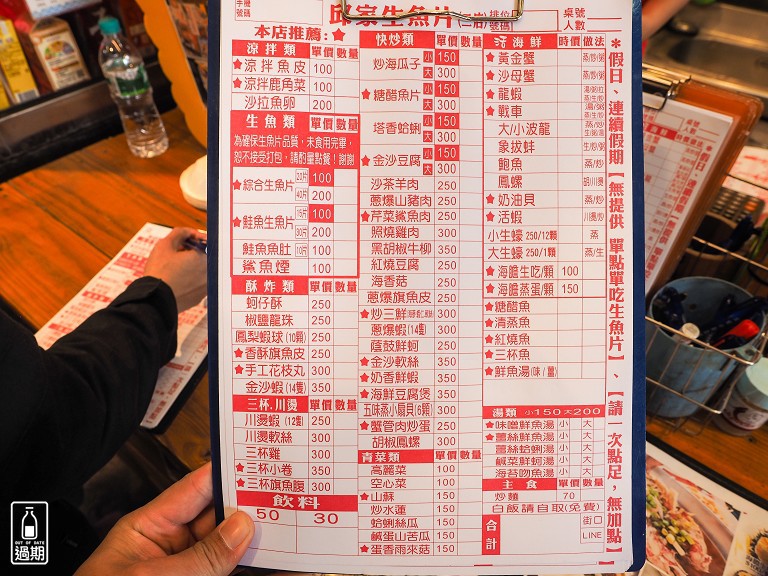 手機
號碼
邱家生魚片(二店)
桌號
人數
本店推薦:★
涼拌類 單價 數量
★涼拌魚皮 100
★涼拌鹿角菜 100
沙拉魚卵 200
生魚類 單價 數量
為確保生魚片品質,未食用完畢,
恕不接受打包,請酌量點餐!謝謝
★綜合生魚片 20片 100
40片 200
★鮭魚生魚片 15片 100
30片 200
鮭魚魚肚 10片 100
鯊魚煙 100
酥炸類 單價 數量
蚵仔酥 250
椒鹽龍珠 250
鳳梨蝦球(10顆) 250
★香酥旗魚皮 250
★手工花枝丸 300
金沙蝦(14隻) 350
三杯.川燙 單價 數量
川燙蝦(12隻) 250
川燙軟絲 300
三杯雞 300
★三杯小卷 350
★三杯旗魚腹 300
飲料
50 30
快炒類 單價 數量
炒海瓜子 小 150
大 300
★糖醋魚片 小 150
大 300
塔香蛤蜊 小 150
大 300
★金沙豆腐 小 150
大 300
沙茶羊肉 250
蔥爆山豬肉 250
★芹菜鯊魚肉 250
照燒雞肉 300
黑胡椒牛柳 350
紅燒豆腐 250
海香菇 250
蔥爆旗魚皮 250
★炒三鮮 300
蔥爆蝦(14隻) 300
蔭鼓鮮蚵 250
★金沙軟絲 350
★奶香鮮蝦 350
★海鮮豆腐煲 350
五味蒸小扇貝(6顆) 300
★蟹管肉炒蛋 250
胡椒鳳螺 300
青菜類 單價 數量
高麗菜 100
空心菜 100
★山蘇 150
炒水蓮 150
蛤蜊絲瓜 150
鹹蛋山苦瓜 150
★蛋香雨來菇 150
活海鮮 時價 做法
★黃金蟹
★沙母蟹
★龍蝦
★戰車
大/小波龍
象拔蚌
鮑魚
鳳螺
★奶油貝
★活蝦
小生蠔 250/12顆 蒸
大生蠔 250/1顆 蒸/生
★海膽生吃/顆 100
★海膽蒸蛋/顆 150
★糖醋魚
★清蒸魚
★紅燒魚
★三杯魚
★鮮魚湯(味/薑)
湯類 小150大200
★味噌鮮魚湯 小 大
★薑絲鮮魚湯 小 大
薑絲蛤蜊湯 小 大
鹹菜鮮蚵湯 小 大
海苔吻魚湯 小 大
主食 單價 數量
炒麵 70
白飯請自取(免費)
合計
街口
LINE
*假日、連續假期【無提供 單點單吃生魚片】、【請一次點足,無加點】
OUT OF DATE
過期